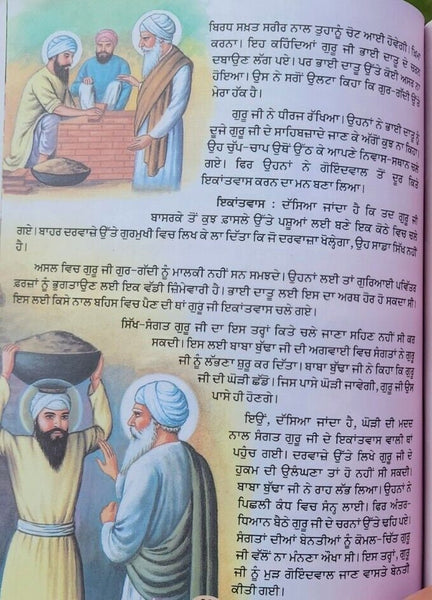 ਬਿਰਧ ਸਖ਼ਤ ਸਰੀਰ ਨਾਲ ਤੁਹਾਨੂੰ ਚੋਟ ਆਈ ਹੋਵੇਗੀ।
ਕਰਨਾ। ਇਹ ਕਹਿੰਦਿਆਂ ਗੁਰੂ ਜੀ ਭਾਈ ਦਾਤੂ ਦੇ ਚਰਨ
ਦਬਾਉਣ ਲੱਗ ਪਏ। ਪਰ ਭਾਈ ਦਾਤੂ ਉੱਤੇ ਕੋਈ ਅਸਰ ਨਾ
ਹੋਇਆ। ਉਸ ਨੇ ਸਗੋਂ ਉਲਟਾ ਕਿਹਾ ਕਿ ਗੁਰ-ਗੱਦੀ ਉੱਤੇ
ਮੇਰਾ ਹੱਕ ਹੈ।
ਗੁਰੂ ਜੀ ਨੇ ਧੀਰਜ ਰੱਖਿਆ। ਉਹਨਾਂ ਨੇ ਭਾਈ ਦਾਤੂ ਨੂੰ
ਦੂਜੇ ਗੁਰੂ ਜੀ ਦੇ ਸਾਹਿਬਜ਼ਾਦੇ ਜਾਣ ਕੇ ਅੱਗੋਂ ਕੁਝ ਨਾ ਕਿਹਾ।
ਉਹ ਚੁੱਪ-ਚਾਪ ਉਥੋਂ ਉੱਠ ਕੇ ਆਪਣੇ ਨਿਵਾਸ-ਸਥਾਨ ਚਲੇ
ਗਏ। ਫਿਰ ਉਹਨਾਂ ਨੇ ਗੋਇੰਦਵਾਲ ਤੋਂ ਦੂਰ ਕਿਤੇ
ਇਕਾਂਤਵਾਸ ਕਰਨ ਦਾ ਮਨ ਬਣਾ ਲਿਆ।
ਇਕਾਂਤਵਾਸ : ਦੱਸਿਆ ਜਾਂਦਾ ਹੈ ਕਿ ਤਦ ਗੁਰੂ ਜੀ
ਬਾਸਰਕੇ ਤੋਂ ਕੁਝ ਫ਼ਾਸਲੇ ਉੱਤੇ ਪਸ਼ੂਆਂ ਲਈ ਬਣੇ ਇਕ ਕੋਠੇ ਵਿਚ ਚਲੇ
ਗਏ। ਬਾਹਰ ਦਰਵਾਜ਼ੇ ਉੱਤੇ ਗੁਰਮੁਖੀ ਵਿਚ ਲਿਖ ਕੇ ਲਾ ਦਿੱਤਾ ਕਿ ਜੋ ਦਰਵਾਜ਼ਾ ਖੋਲ੍ਹੇਗਾ, ਉਹ ਸਾਡਾ ਸਿੱਖ ਨਹੀਂ
ਹੈ।
ਅਸਲ ਵਿਚ ਗੁਰੂ ਜੀ ਗੁਰ-ਗੱਦੀ ਨੂੰ ਮਾਲਕੀ ਨਹੀਂ ਸਨ ਸਮਝਦੇ। ਉਹਨਾਂ ਲਈ ਤਾਂ ਗੁਰਿਆਈ ਪਵਿੱਤਰ
ਫ਼ਰਜ਼ਾਂ ਨੂੰ ਭੁਗਤਾਉਣ ਲਈ ਇਕ ਵੱਡੀ ਜ਼ਿੰਮੇਵਾਰੀ ਹੈ। ਭਾਈ ਦਾਤੂ ਲਈ ਇਸ ਦਾ ਅਰਥ ਹੋਰ ਹੋ ਸਕਦਾ ਸੀ।
ਇਸ ਲਈ ਕਿਸੇ ਨਾਲ ਬਹਿਸ ਵਿਚ ਪੈਣ ਦੀ ਥਾਂ ਗੁਰੂ ਜੀ ਇਕਾਂਤਵਾਸ ਚਲੇ ਗਏ।
ਸਿੱਖ-ਸੰਗਤ ਗੁਰੂ ਜੀ ਦਾ ਇਸ ਤਰ੍ਹਾਂ ਕਿਤੇ ਚਲੇ ਜਾਣਾ ਸਹਿਣ ਨਹੀਂ ਸੀ ਕਰ
ਸਕਦੀ। ਇਸ ਲਈ ਬਾਬਾ ਬੁੱਢਾ ਜੀ ਦੀ ਅਗਵਾਈ ਵਿਚ ਸੰਗਤਾਂ ਨੇ ਗੁਰੂ
ਜੀ ਨੂੰ ਲੱਭਣਾ ਸ਼ੁਰੂ ਕਰ ਦਿੱਤਾ। ਬਾਬਾ ਬੁੱਢਾ ਜੀ ਨੇ ਕਿਹਾ ਕਿ ਗੁਰੂ
ਜੀ ਦੀ ਘੋੜੀ ਛੱਡੋ। ਜਿਸ ਪਾਸੇ ਘੋੜੀ ਜਾਵੇਗੀ, ਗੁਰੂ ਜੀ ਉਸ
ਪਾਸੇ ਹੀ ਹੋਣਗੇ।
ਇਉਂ, ਦੱਸਿਆ ਜਾਂਦਾ ਹੈ, ਘੋੜੀ ਦੀ ਮਦਦ
ਨਾਲ ਸੰਗਤ ਗੁਰੂ ਜੀ ਦੇ ਇਕਾਂਤਵਾਸ ਵਾਲੀ ਥਾਂ
ਪਹੁੰਚ ਗਈ। ਦਰਵਾਜ਼ੇ ਉੱਤੇ ਲਿਖੇ ਗੁਰੂ ਜੀ ਦੇ
ਹੁਕਮ ਦੀ ਉਲੰਘਣਾ ਤਾਂ ਹੋ ਨਹੀਂ ਸੀ ਸਕਦੀ।
ਬਾਬਾ ਬੁੱਢਾ ਜੀ ਨੇ ਰਾਹ ਲੱਭ ਲਿਆ। ਉਹਨਾਂ ਨੇ
ਪਿਛਲੀ ਕੰਧ ਵਿਚ ਸੰਨ੍ਹ ਲਾਈ। ਫਿਰ ਅੰਤਰ-
ਧਿਆਨ ਬੈਠੇ ਗੁਰੂ ਜੀ ਦੇ ਚਰਨਾਂ ਉੱਤੇ ਢਹਿ ਪਏ।
ਸੰਗਤਾਂ ਦੀਆਂ ਬੇਨਤੀਆਂ ਨੂੰ ਕੋਮਲ-ਚਿੱਤ ਗੁਰੂ
ਜੀ ਵੱਲੋਂ ਨਾ ਮੰਨਣਾ ਔਖਾ ਸੀ। ਇਸ ਤਰ੍ਹਾਂ, ਗੁਰੂ
ਜੀ ਨੂੰ ਮੁੜ ਗੋਇੰਦਵਾਲ ਜਾਣ ਵਾਸਤੇ ਬੇਨਤੀ
ਕੀਤੀ ਗਈ।